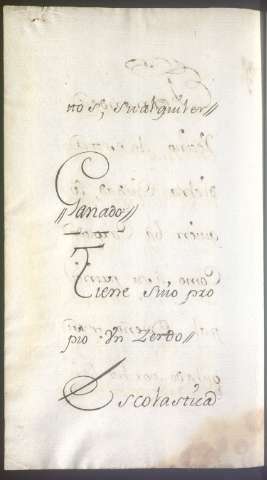 nos, su alquiler //
Ganado //
Tiene suio pro
pio Un Zerdo //
Escolastica